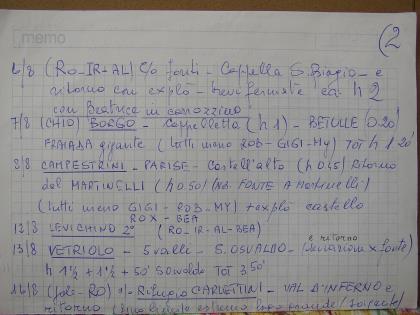 memo
(2
6/8 (RO-IR-AL) c/o fonti - Cappella S. Biagio - e
ritorno con explò - brevi fermate ca. h 2
con Beatrice in carrozzino!
7/8 (CHIO) BORGO - Cappelletta (h 1) - BETULLE 0.20'
FRAHADA gigante (tutti meno ROB-GIGI-MY) Tot h 1 20'
8/8 CAMPESTRINI - PARISE - Castell'alto (h 0.45) Ritorno
dal MARTINELLI (h 0.50) (NB. FONTE A Martinelli)
(tutti meno GIGI - ROB-MY) + explò castello
ROX - BEA
12/8 LEVICHINO 2° (RO-IR-AL-BEA)
13/8 VETRIOLO - 5 valli - S. OSVALDO - e ritorno (deviazione x fonte)
h 1½ + 1½ + 50' Sowaldo Tot 3 50'
16/8 (Joli-RO) Rifugio CARLETTINI - VAL D'INFERNO e
ritorno